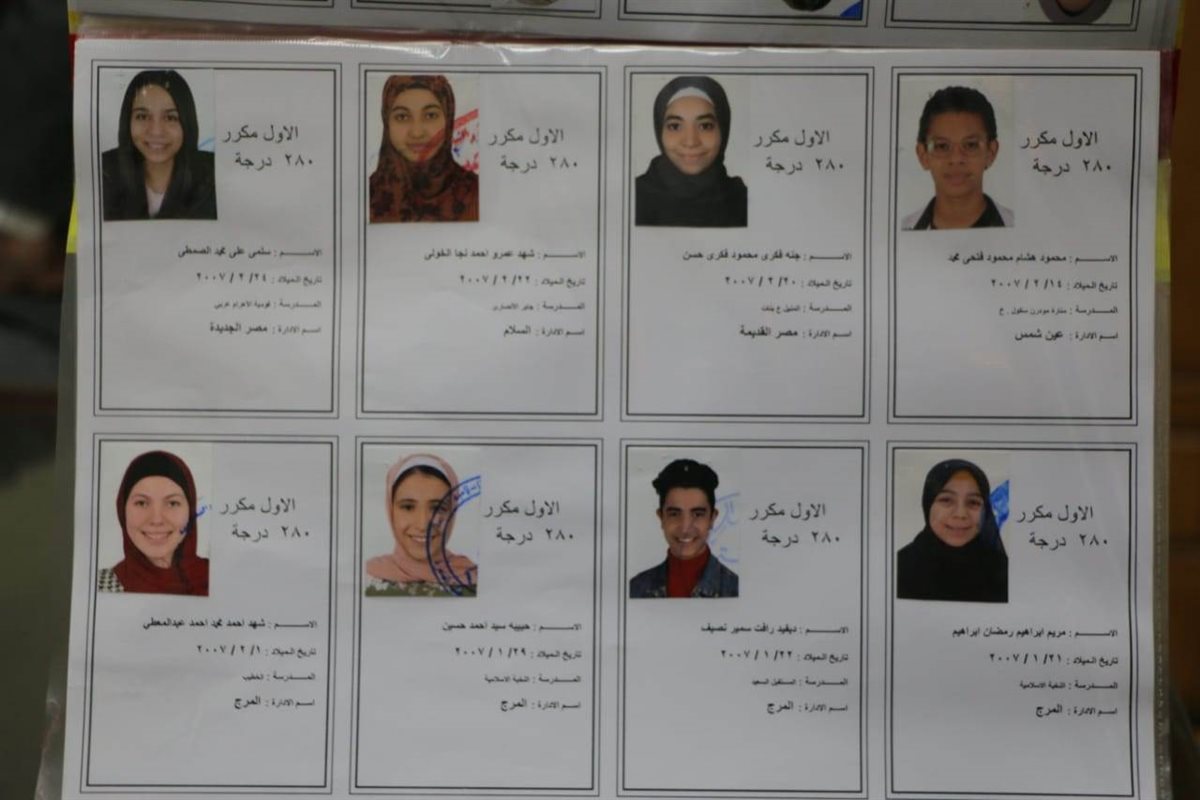 الاول مكرر
٢٨٠ درجة
الاســـــم : محمود هشام محمود فتحى محمد
تاريخ الميلاد : ١٤/ ٢ / ٢٠٠٧
المــدرسة : منارة مودرن سكول . خ
اسم الادارة : عين شمس
الاول مكرر
٢٨٠ درجة
الاســـــم : جنه فكرى محمود فكرى حسن
تاريخ الميلاد : ٢٠/ ٢ / ٢٠٠٧
المــدرسة : المنيل ع بنات
اسم الادارة : مصر القديمة
الاول مكرر
٢٨٠ درجة
الاســـــم : شهد عمرو احمد نجا الخولى
تاريخ الميلاد : ٢٢/ ٢ / ٢٠٠٧
المــدرسة : جابر الانصارى
اسم الادارة : السلام
الاول مكرر
٢٨٠ درجة
الاســـــم : سلمى على محمد الصمطى
تاريخ الميلاد : ٢٤/ ٢ / ٢٠٠٧
المــدرسة : قومية الاهرام عربي
اسم الادارة : مصر الجديدة
الاول مكرر
٢٨٠ درجة
الاســـــم : مريم ابراهيم رمضان ابراهيم
تاريخ الميلاد : ٢١/ ١ / ٢٠٠٧
المــدرسة : النخبة الاسلامية
اسم الادارة : المرج
الاول مكرر
٢٨٠ درجة
الاســـــم : ديفيد رافت سمير نصيف
تاريخ الميلاد : ٢٢/ ١ / ٢٠٠٧
المــدرسة : المستقبل السعيد
اسم الادارة : المرج
الاول مكرر
٢٨٠ درجة
الاســـــم : حبيبه سيد احمد حسين
تاريخ الميلاد : ٢٩/ ١ / ٢٠٠٧
المــدرسة : النخبة الاسلامية
اسم الادارة : المرج
الاول مكرر
٢٨٠ درجة
الاســـــم : شهد احمد محمد احمد عبدالمعطي
تاريخ الميلاد : ١/ ٢ / ٢٠٠٧
المــدرسة : الخطيب
اسم الادارة : المرج